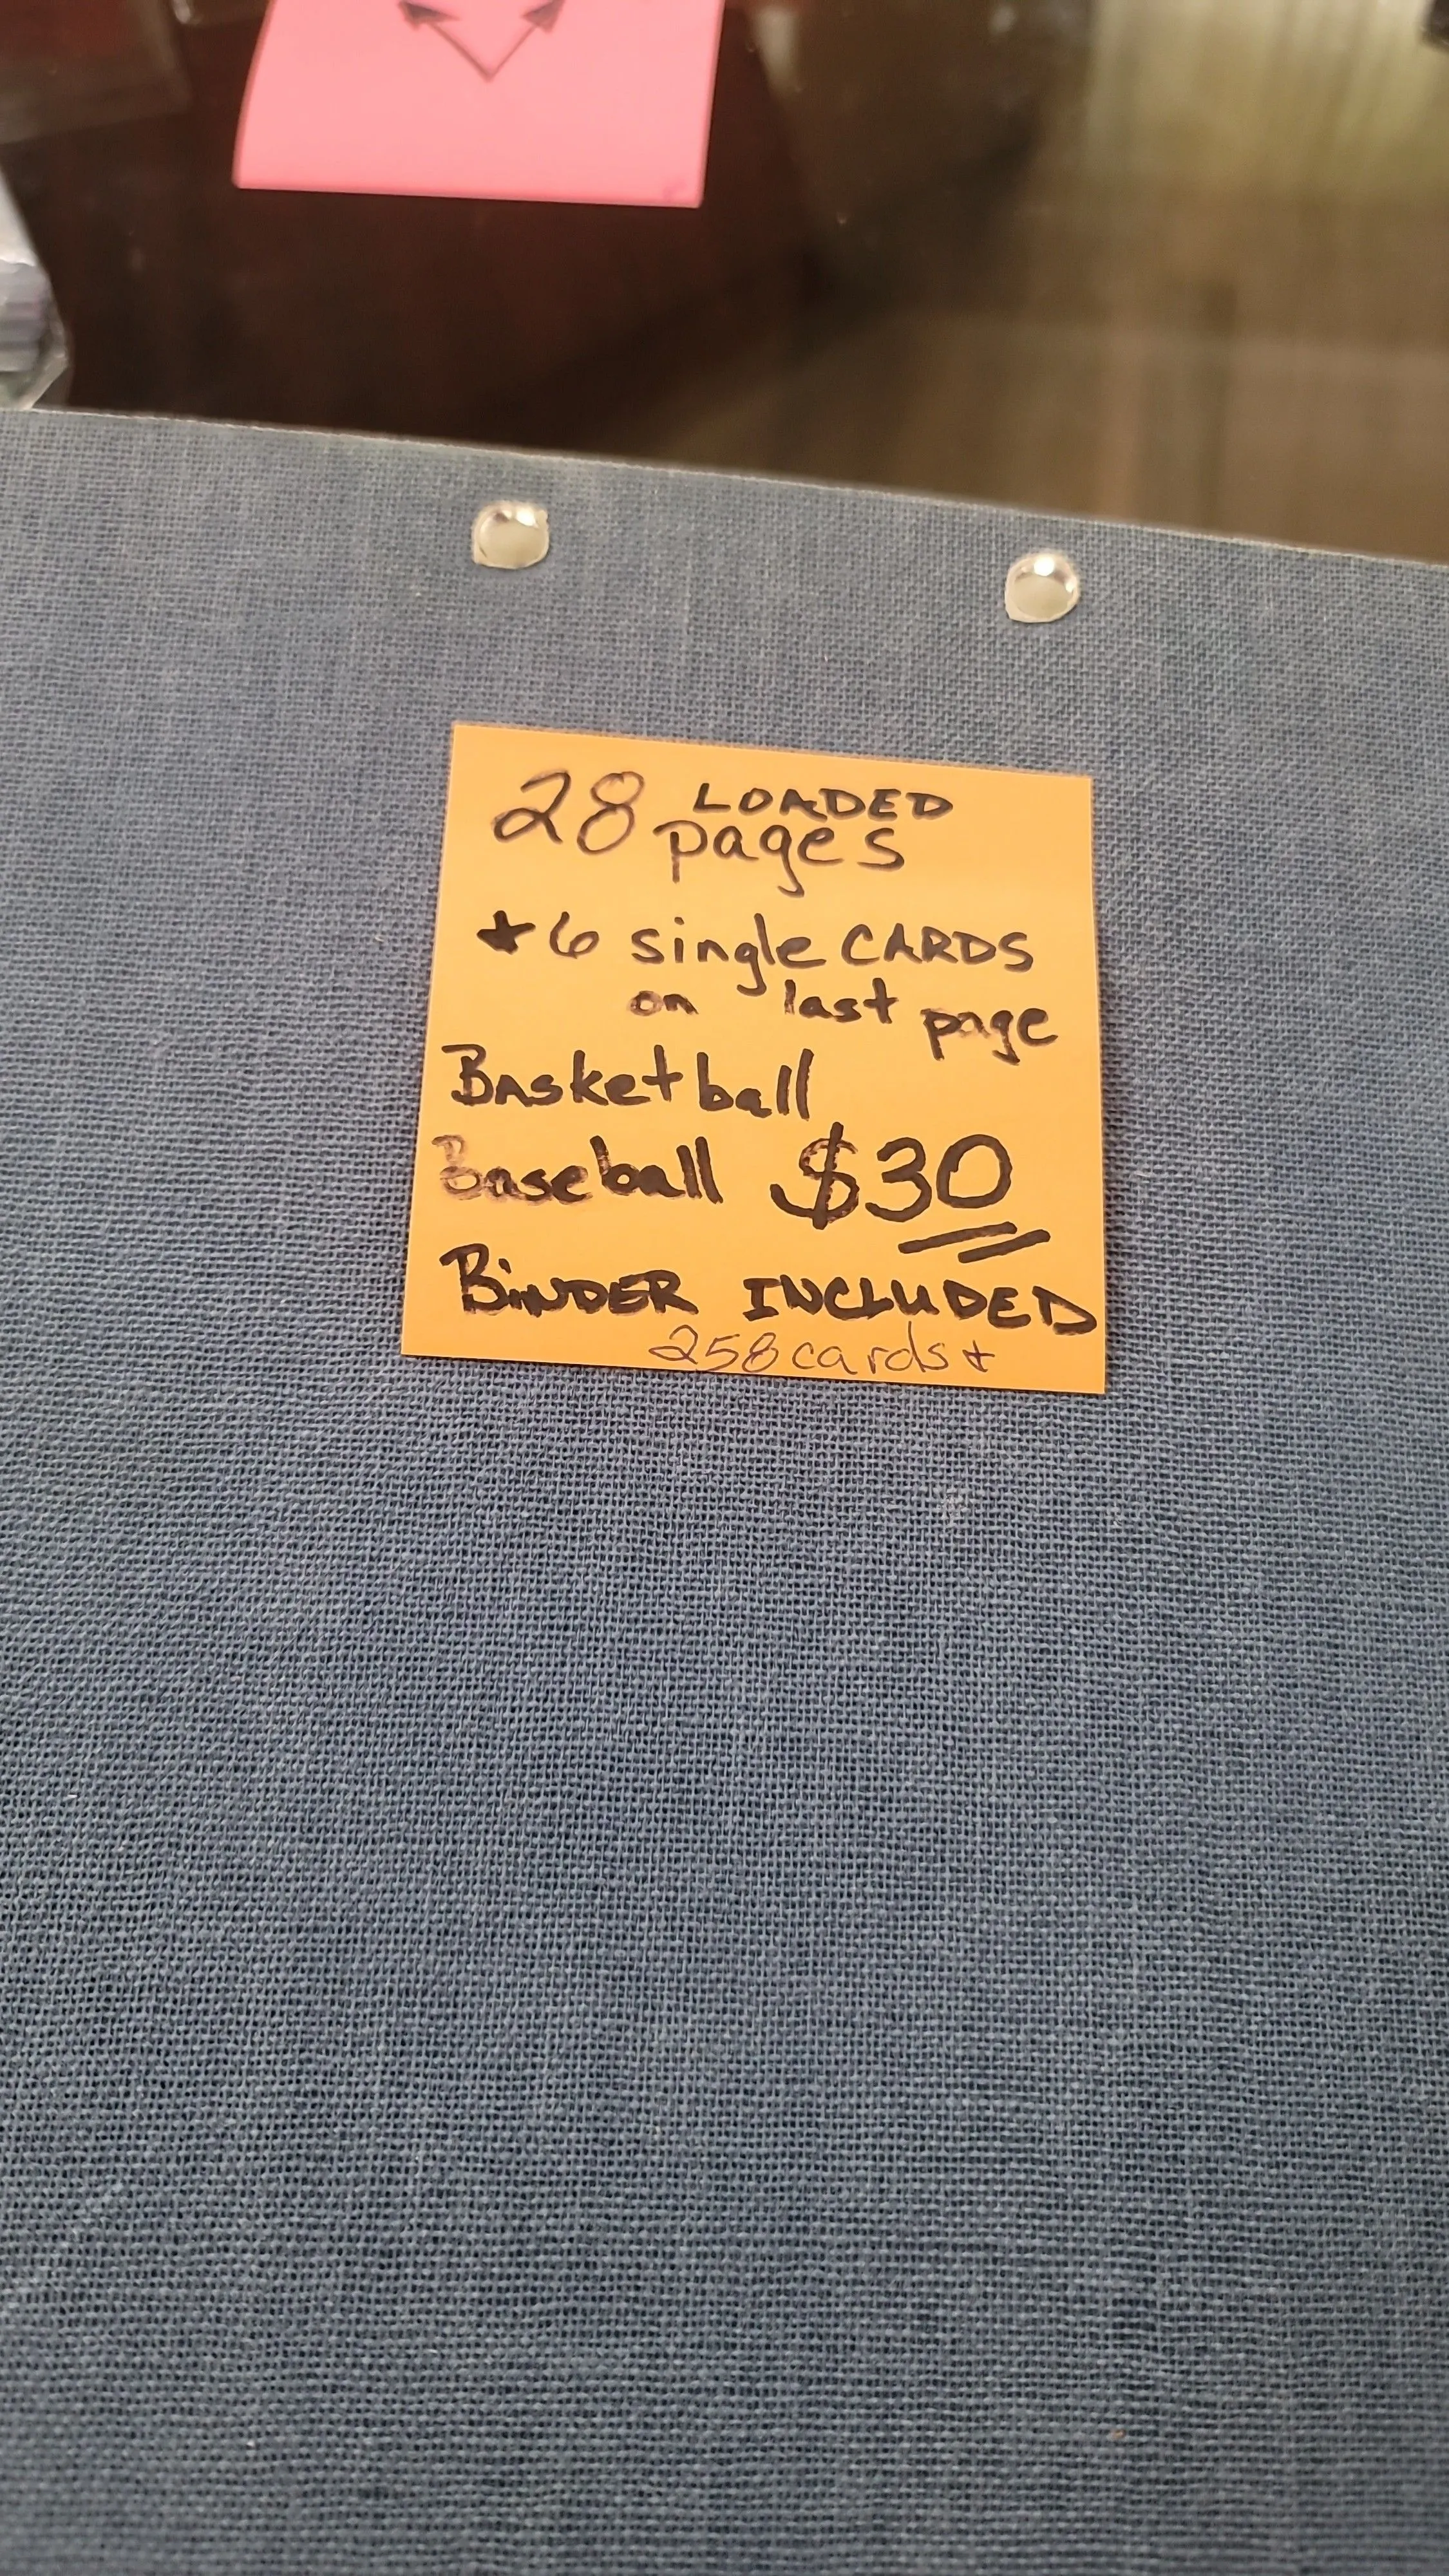 28 LOADED
pages
★6 single CARDS
on last page
Basketball
Baseball $30
BINDER INCLUDED
258 cards +